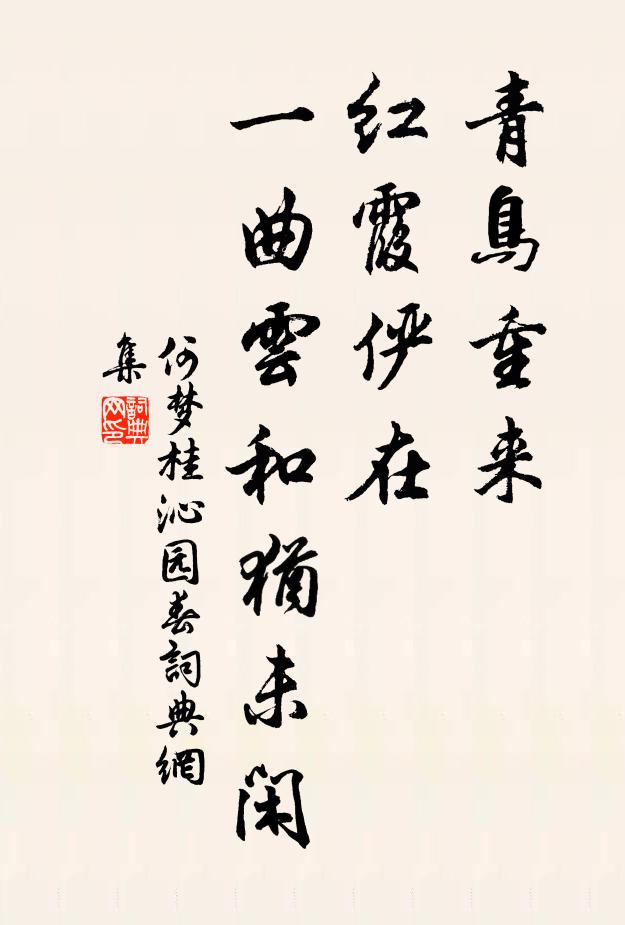 青鳥重来
红霞俨在
一曲雲和猶未闲
何梦桂沁园春詞典網
集
詞典网印